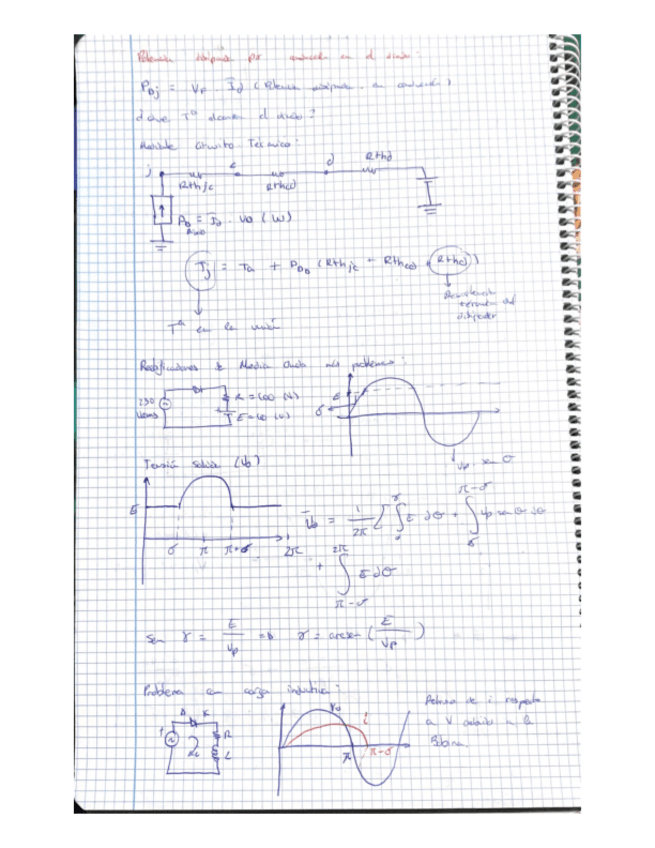 Potencia disipada por conducción en el diodo:
P_Dj = Vp · I_d (Potencia disipada en conducción)
¿Que Tª alcanza el diodo?
Mediante Circuito Térmico:
j c d Rthd
Rthjc Rthcd
P_D = I_d · V_D (W)
Tj = Ta + P_DD (Rthjc + Rthcd + Rthd)
Resistencia
térmica del
disipador
Tª en la unión
Rectificadores de Media Onda más problemas:
230
Vrms
R = 100 (Ω)
E = 10 (V)
E
Vp · sen θ
Tensión salida (Vo)
E
π 2π
Vo = 1/2π [ ∫ E dθ + ∫ Vp sen θ dθ
+ ∫ E dθ
sen γ = E/Vp => γ = arcsen (E/Vp)
Problema con carga inductiva:
D K R L
Vo i π
Retraso de i respecto
a V debido a la
Bobina.